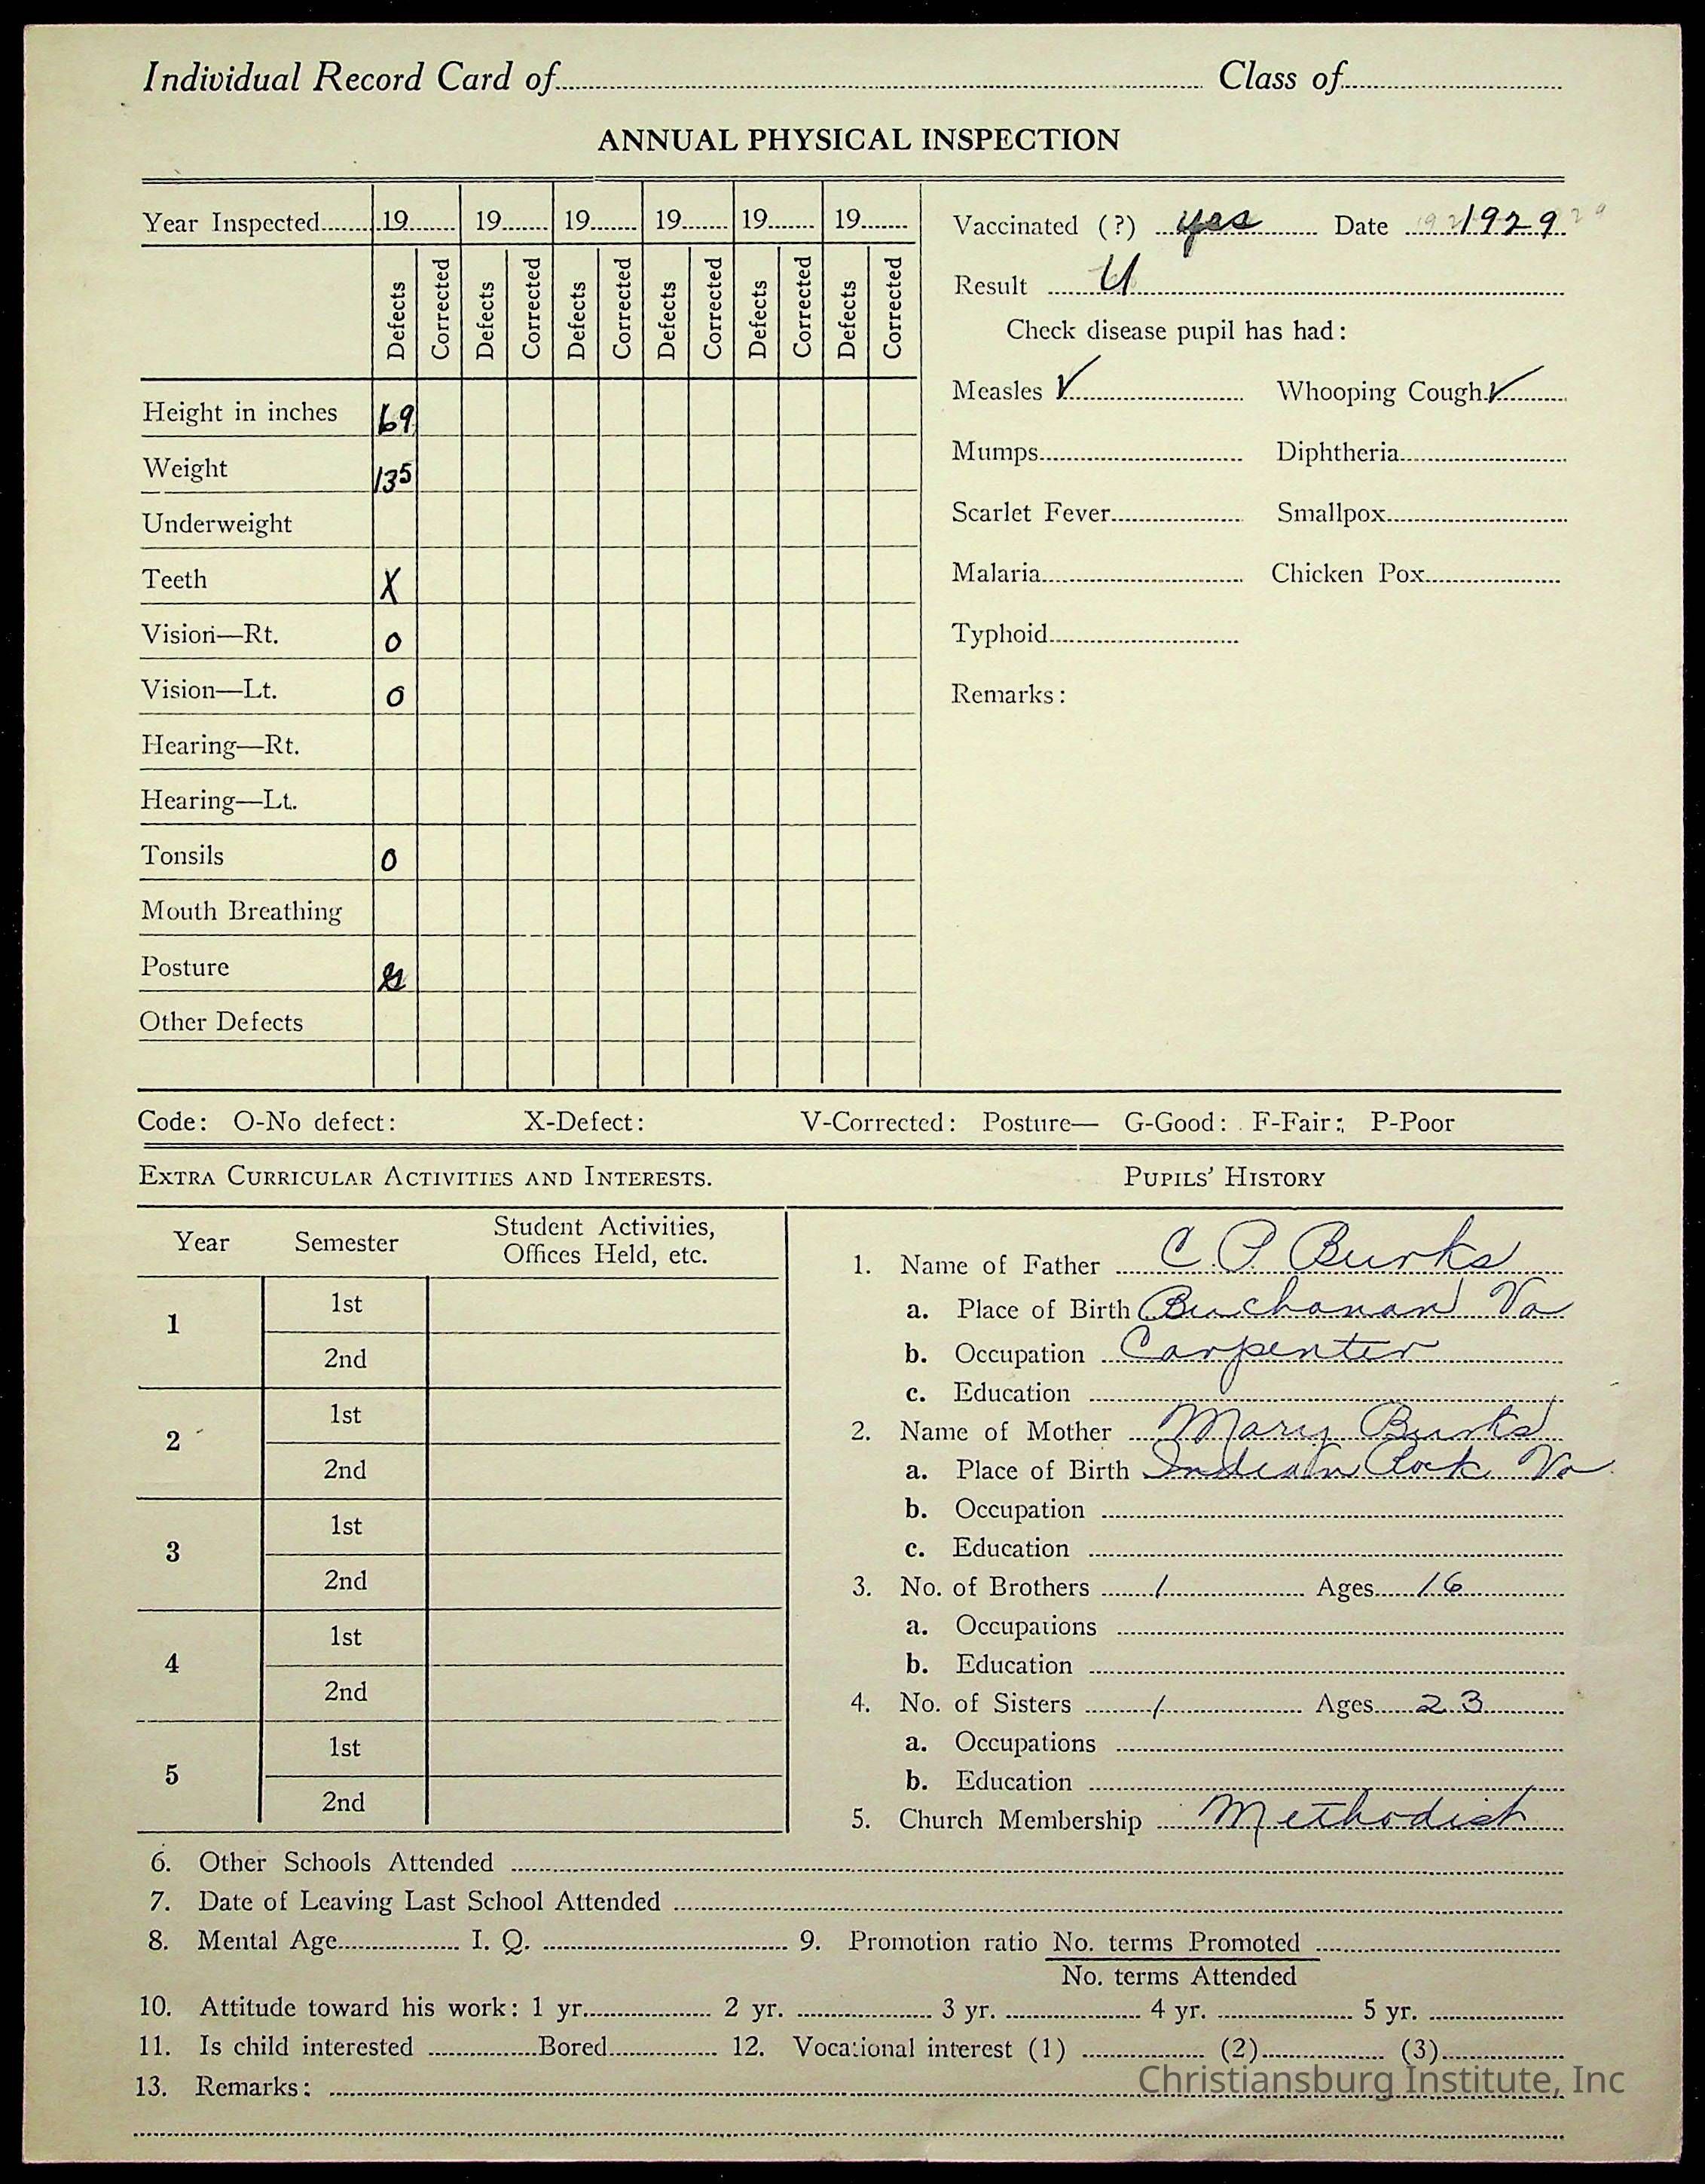 Individual Record Card of........ Class of........
ANNUAL PHYSICAL INSPECTION
Year Inspected........ 19........ 19........ 19........ 19........ 19........ 19........
Defects Corrected Defects Corrected Defects Corrected Defects Corrected Defects Corrected Defects Corrected
Height in inches 69
Weight 135
Underweight
Teeth X
Vision—Rt. O
Vision—Lt. O
Hearing—Rt.
Hearing—Lt.
Tonsils O
Mouth Breathing
Posture
Other Defects
Vaccinated (?) yes Date 1929
Result
Check disease pupil has had:
Measles V Whooping Cough V
Mumps........ Diphtheria........
Scarlet Fever........ Smallpox........
Malaria........ Chicken Pox........
Typhoid........
Remarks:
Code: O-No defect: X-Defect: V-Corrected: Posture— G-Good: F-Fair: P-Poor
EXTRA CURRICULAR ACTIVITIES AND INTERESTS.
Year Semester Student Activities, Offices Held, etc.
1 1st
2nd
2 1st
2nd
3 1st
2nd
4 1st
2nd
5 1st
2nd
PUPILS' HISTORY
1. Name of Father C. P. Burks
a. Place of Birth Buchanan Va
b. Occupation Carpenter
c. Education ........
2. Name of Mother Mary Burks
a. Place of Birth Indian Rock Va
b. Occupation ........
c. Education ........
3. No. of Brothers 1 Ages 16
a. Occupations ........
b. Education ........
4. No. of Sisters 1 Ages 23
a. Occupations ........
b. Education ........
5. Church Membership Methodist
6. Other Schools Attended ........
7. Date of Leaving Last School Attended ........
8. Mental Age........ I. Q. ........ 9. Promotion ratio No. terms Promoted ........
No. terms Attended
10. Attitude toward his work: 1 yr........ 2 yr. ........ 3 yr. ........ 4 yr. ........ 5 yr. ........
11. Is child interested ........Bored........ 12. Vocational interest (1) ........ (2)........ (3)........
13. Remarks: ........
Christiansburg Institute, Inc